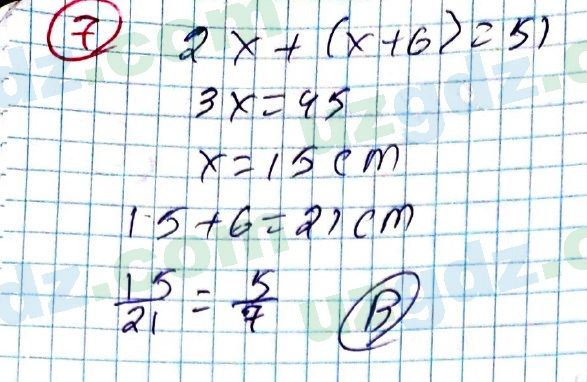 7 2x+(x+6)=51
3x=45
x=15 cm
15+6=21 cm
15/21 = 5/7 B